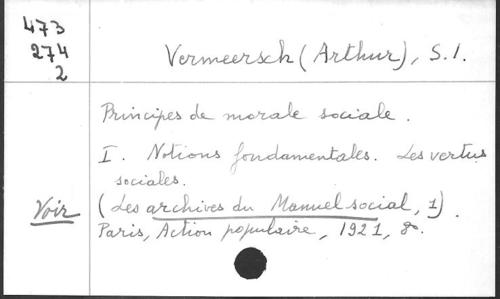 473
274
2
Vermeersch (Arthur), S.I.
Principes de morale sociale.
I. Notions fondamentales. Les vertus
sociales.
Voir
(Les archives du Manuel social, 1).
Paris, Action populaire, 1921, 8º.